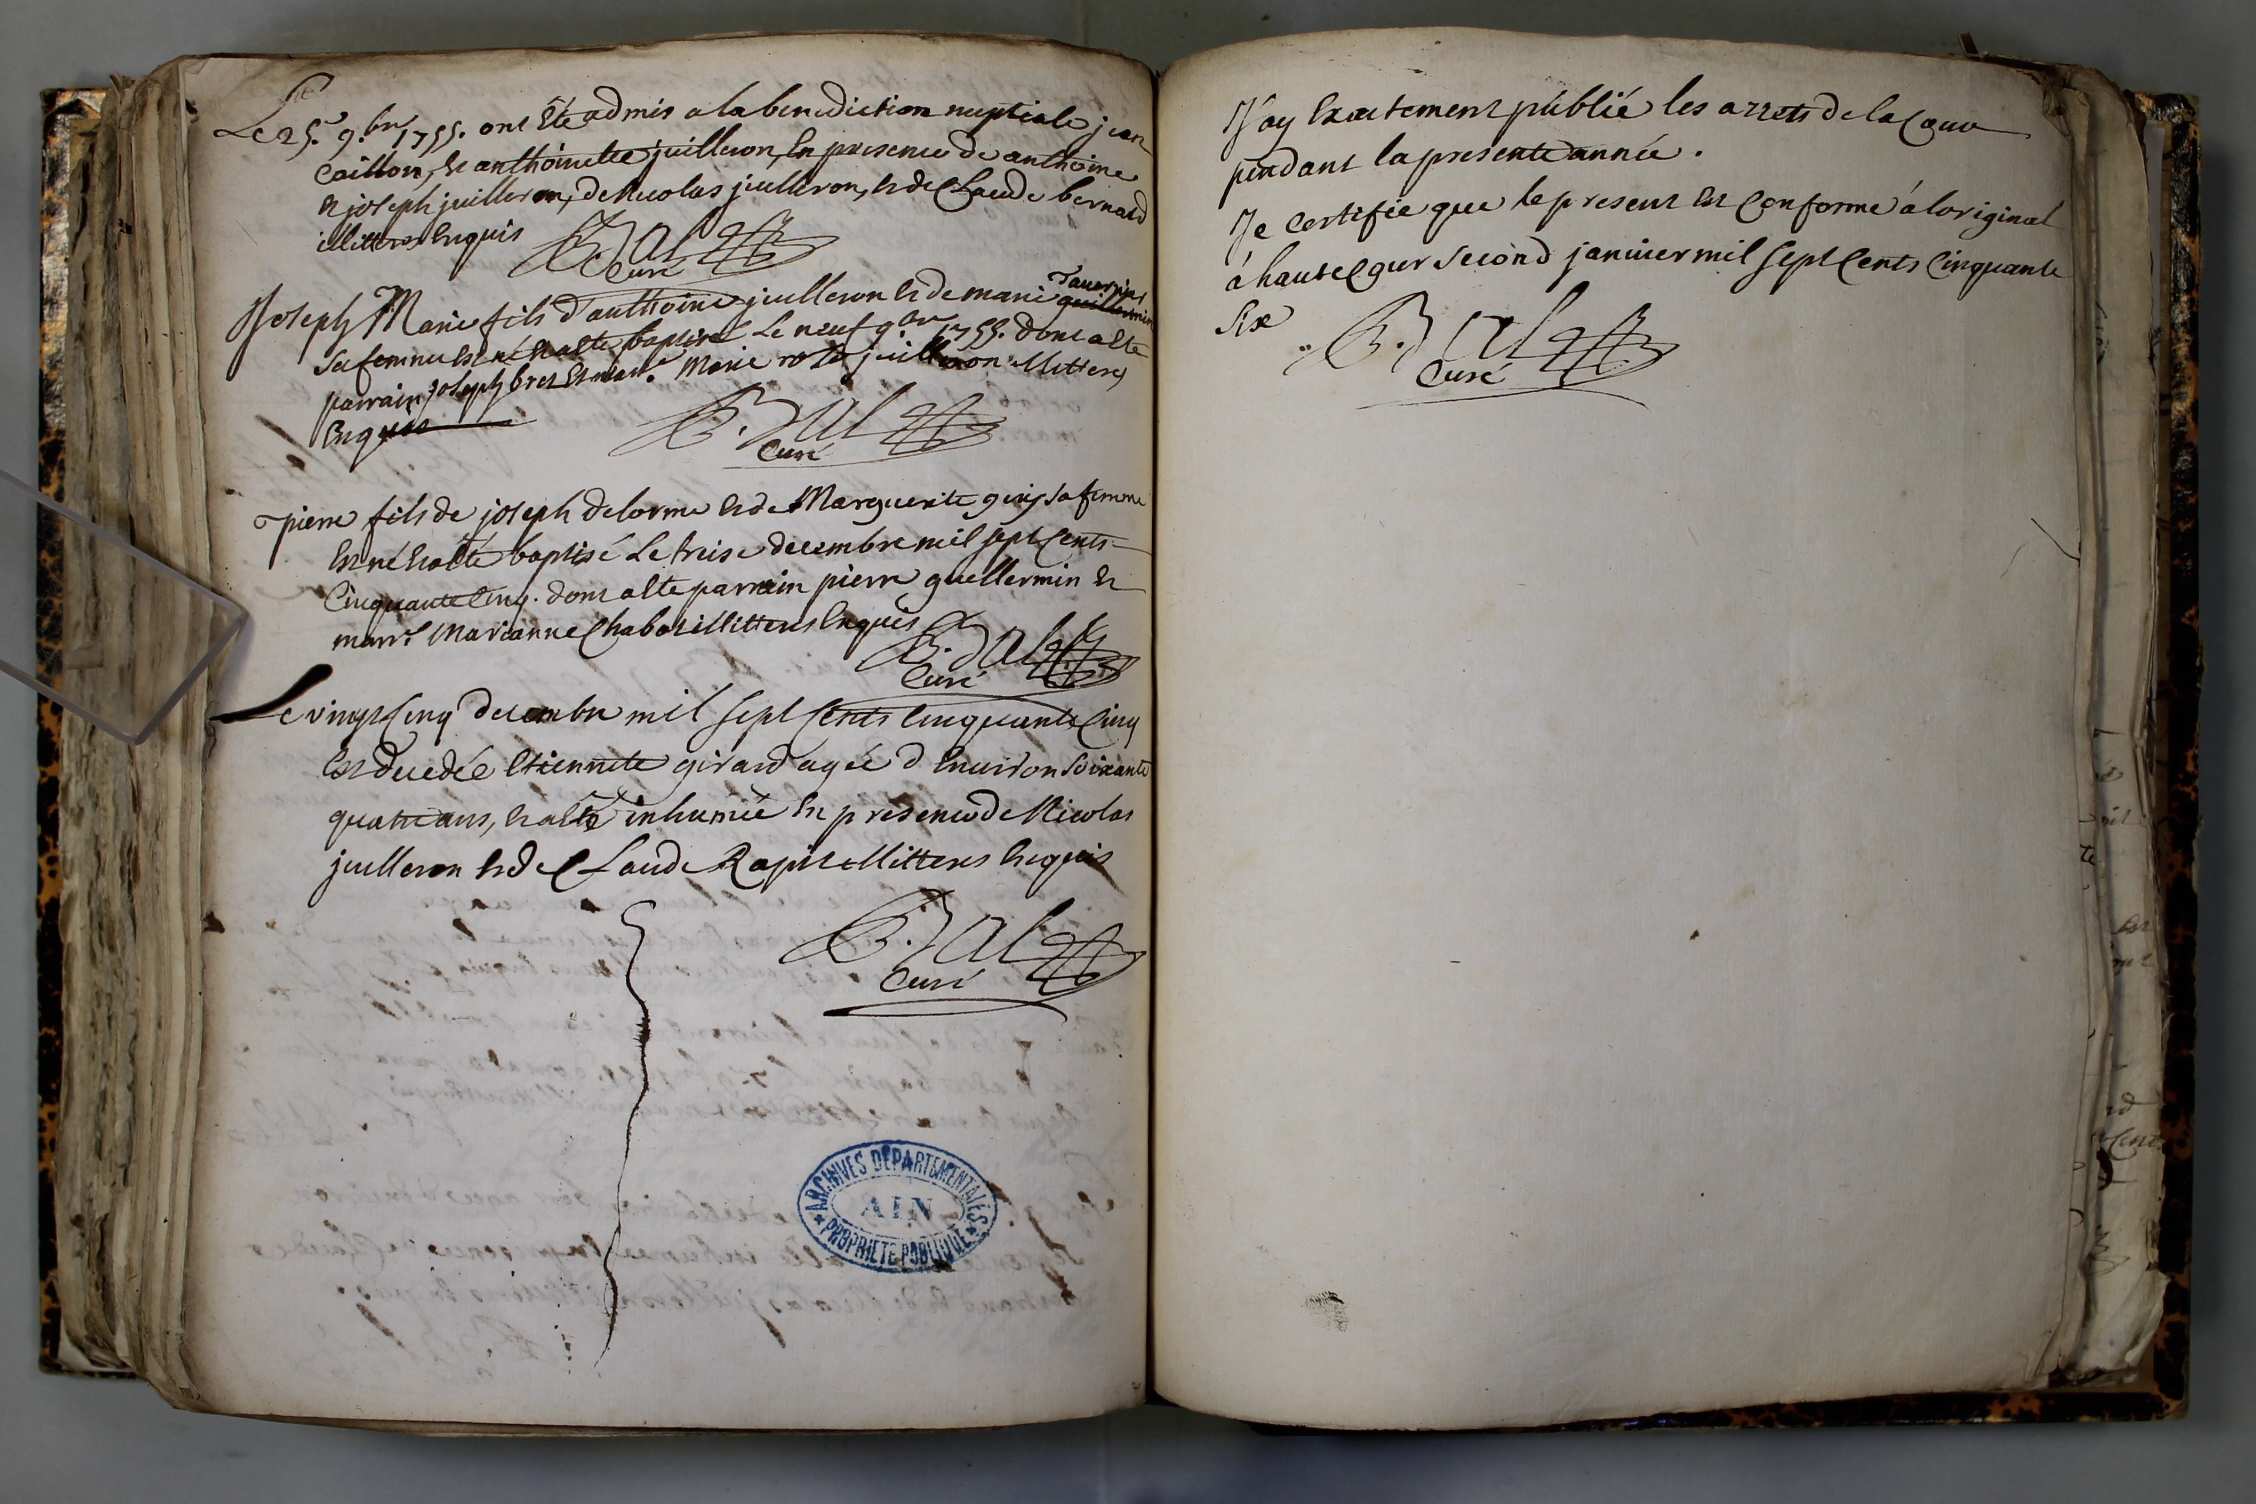 Le 25.e 9.bre 1755. ont Eté admis a la benediction nuptiale jean
Caillon, Et anthoinette juilleron, En presence de anthoine
Et joseph juilleron, de Nicolas juilleron, Et de Claude bernard
illitteres Enquis B. Dal
Curé
Joseph Marie fils d'anthoine juilleron Et de marie Tavernier guillermin
sa femme Est né Et a Eté baptisé Le neuf 9.bre 1755. dont a Eté
parrain joseph bret Et marr.e Marie roze juilleron illitteres
Enquis
B. Dal
Curé
pierre fils de joseph delorme Et de Marguerite guy sa femme
Est né Et a Eté baptisé Le treise decembre mil sept Cents
Cinquante Cinq. dont a Eté parrain pierre guellermin Et
marr.e Marianne Chabot illitteres Enquis B. Dal
Curé
Le vingt Cinq decembre mil sept Cents Cinquante Cinq
Est decedée Etiennette girard agée d'Environ soixante
quatre ans, Et a Eté inhumée En presence de Nicolas
juilleron Et de Claude Rapit illitteres Enquis
B. Dal
Curé
ARCHIVES DEPARTEMENTALES
AIN
PROPRIETE PUBLIQUE
J'ay Exactement publié les arrets de la Cour
pendant la presente année.
Je certifie que le present Est Conforme á l'original
á hautecour second janvier mil sept Cents Cinquante
Six B. Dal
Curé